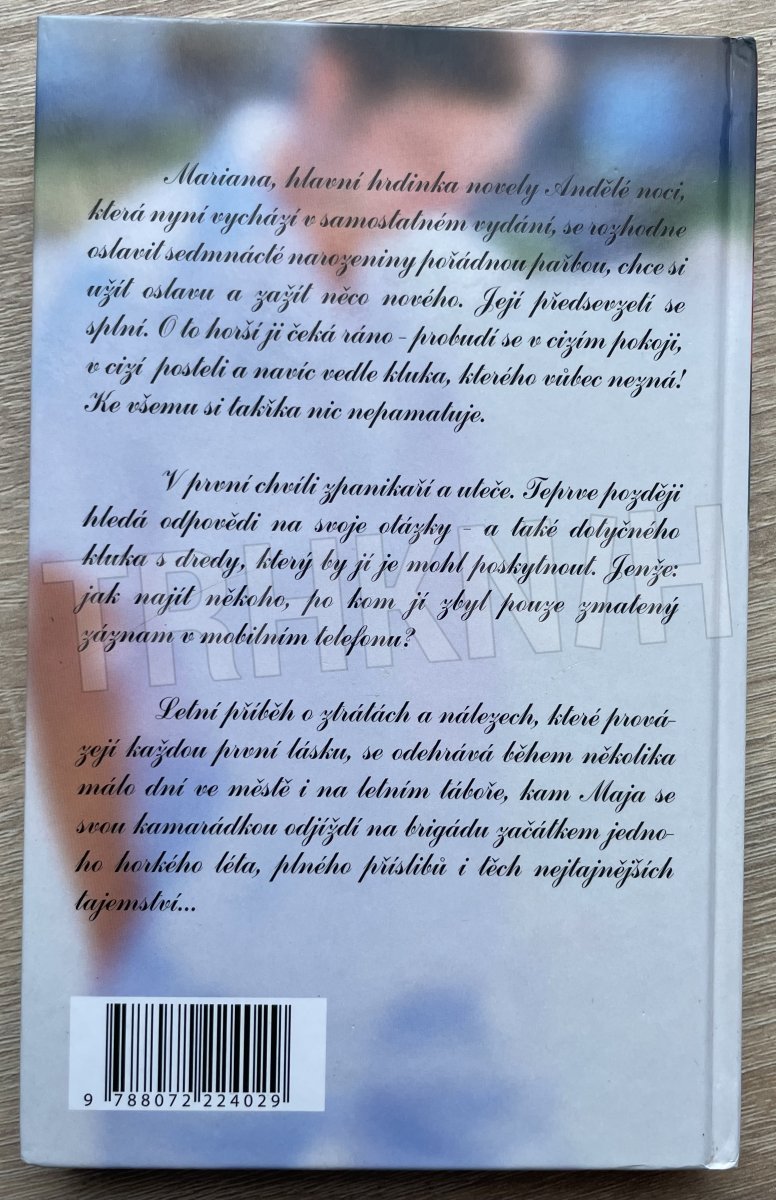 Mariana, hlavní hrdinka novely Andělé noci,
která nyní vychází v samostatném vydání, se rozhodne
oslavit sedmnácté narozeniny pořádnou pařbou, chce si
užít oslavu a zažít něco nového. Její předsevzetí se
splní. O to horší ji čeká ráno - probudí se v cizím pokoji,
v cizí posteli a navíc vedle kluka, kterého vůbec nezná!
Ke všemu si takřka nic nepamatuje.
V první chvíli zpanikaří a uteče. Teprve později
hledá odpovědi na svoje otázky - a také dotyčného
kluka s dredy, který by jí je mohl poskytnout. Jenže:
jak najít někoho, po kom jí zbyl pouze zmatený
záznam v mobilním telefonu?
TRHKNIH
Letní příběh o ztrátách a nálezech, které prová-
zejí každou první lásku, se odehrává během několika
málo dní ve městě i na letním táboře, kam Maja se
svou kamarádkou odjíždí na brigádu začátkem jedno-
ho horkého léta, plného příslibů i těch nejtajnějších
tajemství...
9 788072 224029